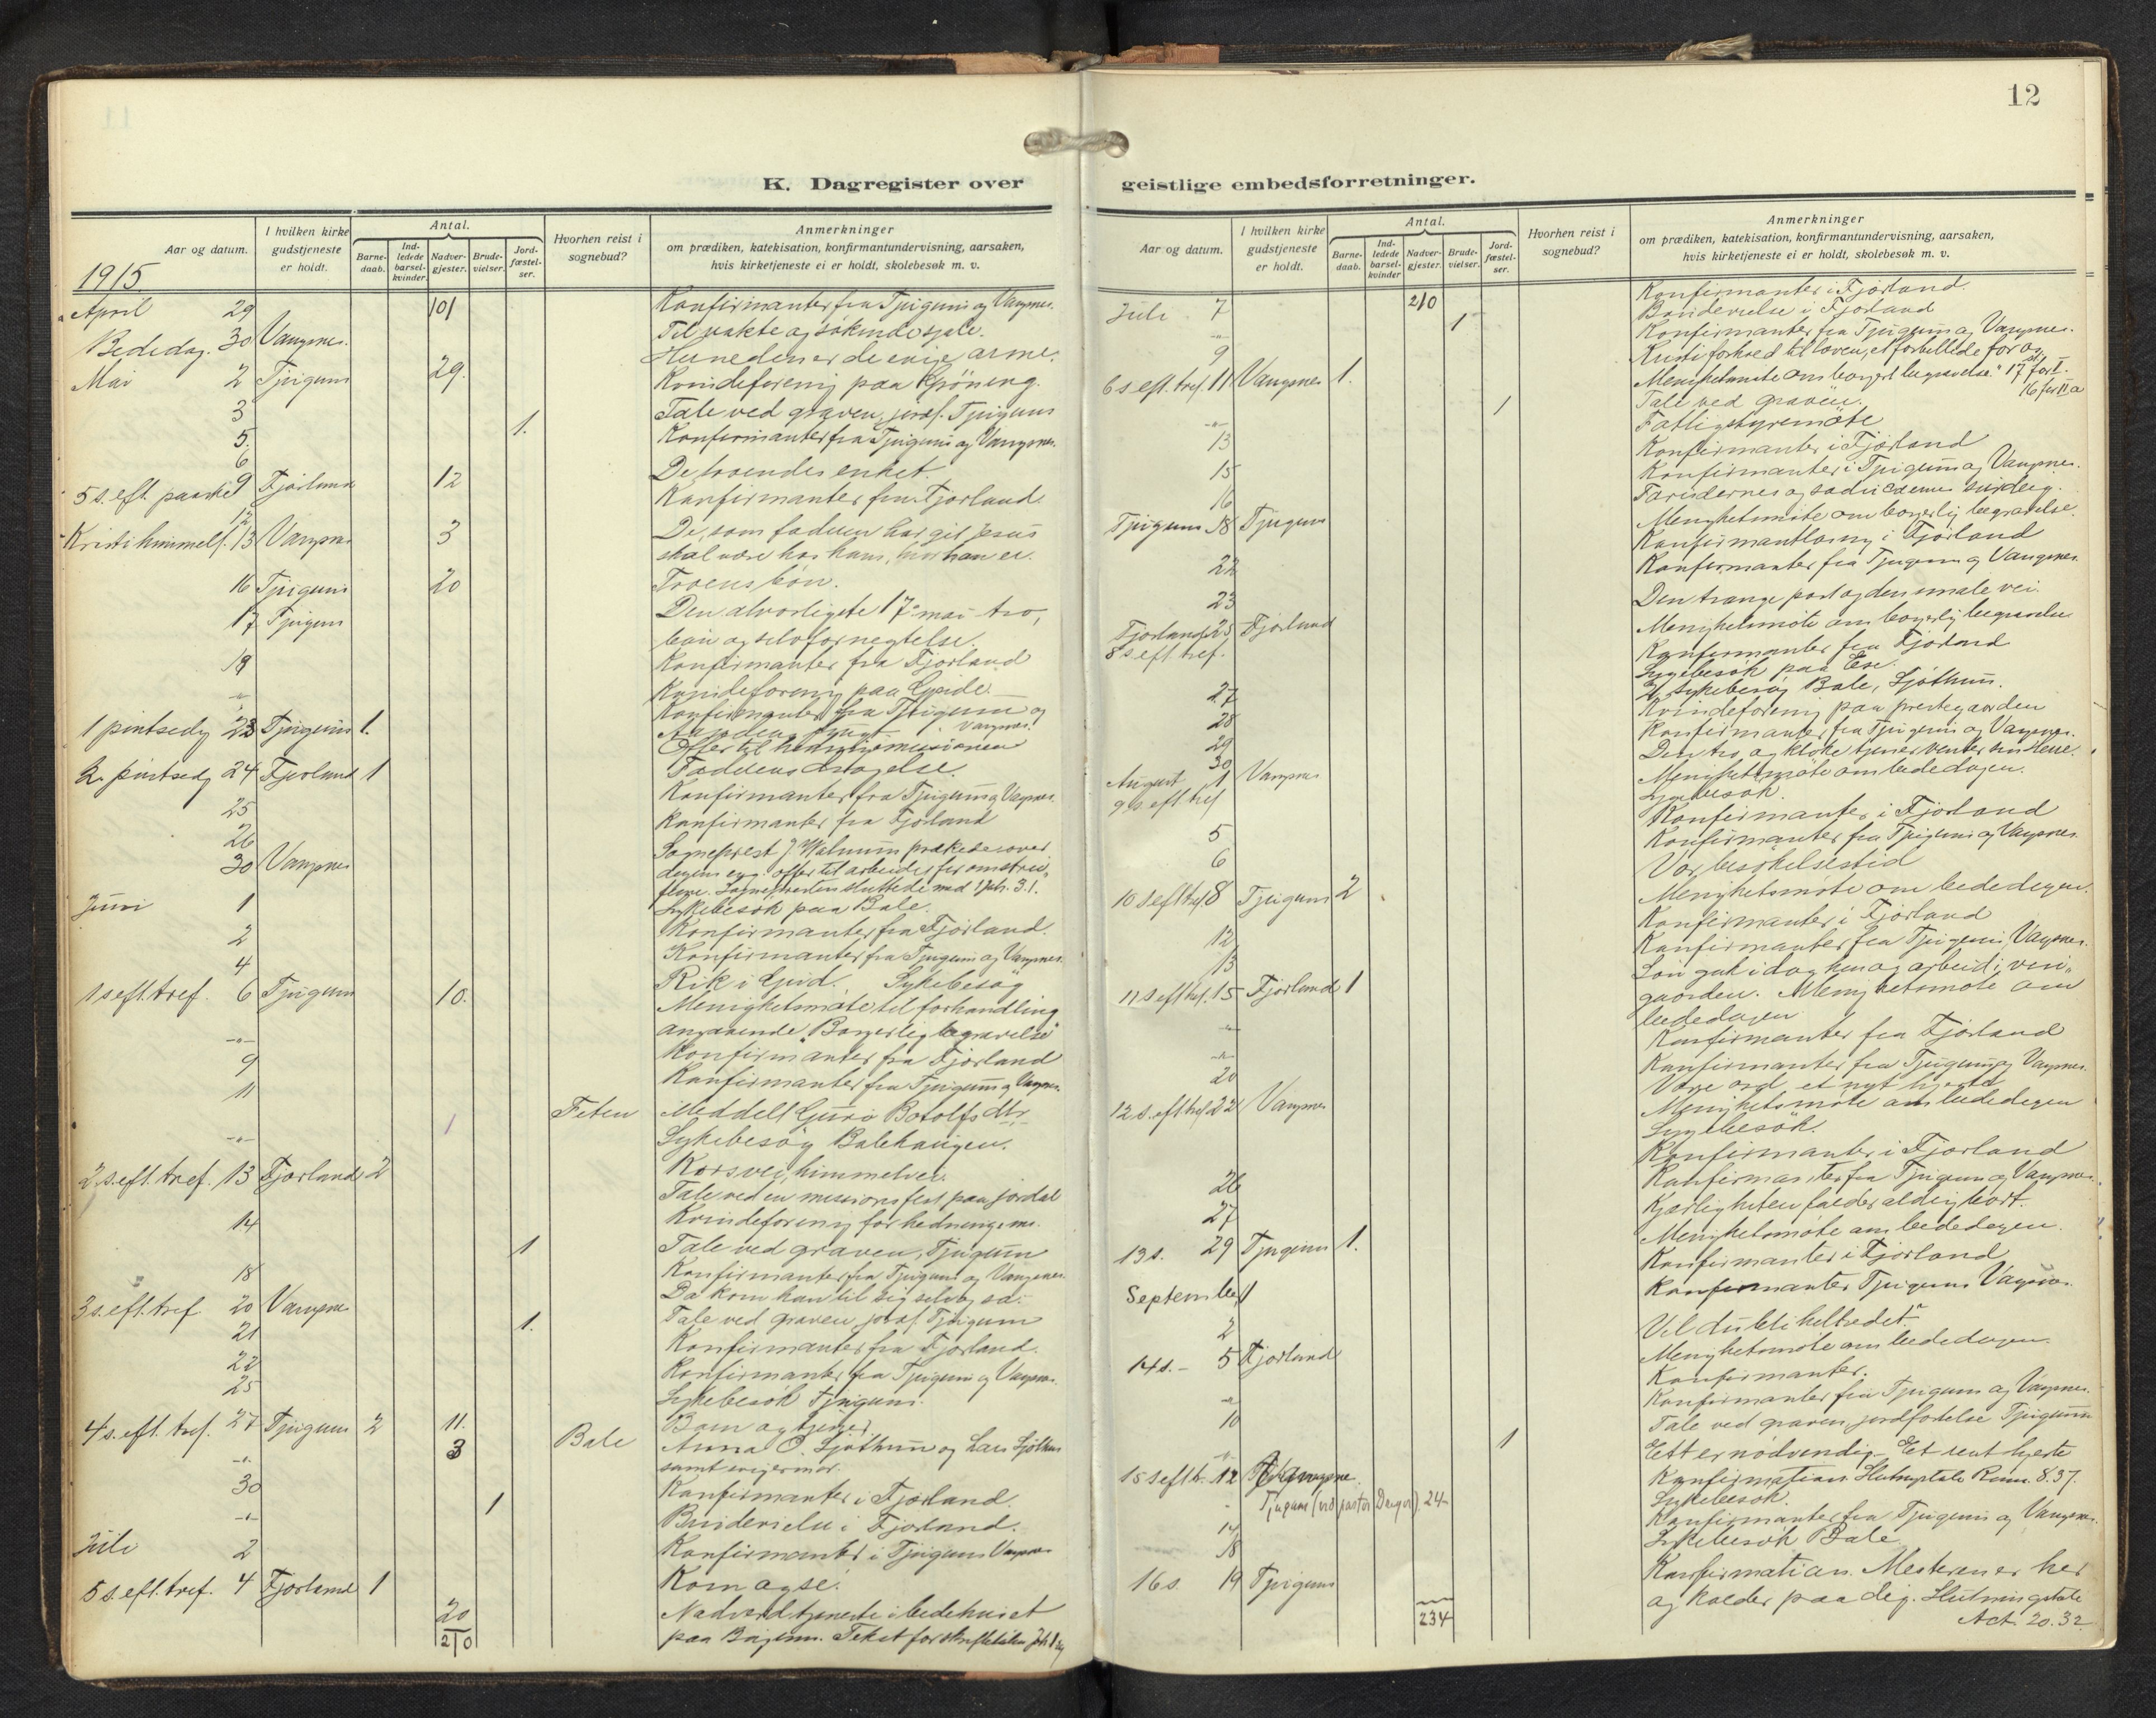 12
K. Dagregister over
geistlige embedsforretninger.
Aar og datum.
I hvilken kirke gudstjeneste er holdt.
Antal.
Barne-daab.
Ind-ledede barsel-kvinder.
Nadver-gjester.
Brude-vielser.
Jord-fæstel-ser.
Hvorhen reist i sognebud?
Anmerkninger
om prædiken, katekisation, konfirmantundervisning, aarsaken,
hvis kirketjeneste ei er holdt, skolebesøk m. v.
1915
April 29 101 Konfirmanter fra Tjugum og Vangsnes.
Bededag. 30 Vangsnes. Til vakte og søkende sjæle.
Herneden er de evige arme.
Mai 2 Tjugum 29. Kvindeforening paa Grøneng.
3 Tale ved graven, jordf. Tjugum
5. 1. Konfirmanter fra Tjugum og Vangsnes.
6 De troendes enhet.
5 s. eft. paaske 9 Fjærland 12 Konfirmanter fra Fjærland.
12 De, som faderen har git Jesus
Kristi himmelf. 13 Vangsnes 3 skal være hos ham, hvor han er.
16 Tjugum 20 Troens bøn.
17 Tjugum Den alvorligste 17. mai - tro,
bøn og selvfornegtelse.
19 Konfirmanter fra Fjærland
Kvindeforening paa Gjeide
Konfirmanter fra Tjugum og Vangsnes.
1 pintsedg 23 Tjugum 1. Aandens
Offer til
2. pintsedg 24 Fjærland 1 Faderens dragelse.
25 Konfirmanter fra Tjugum og Vangsnes.
26 Konfirmanter fra Fjærland
30 Vangsnes Sogneprest J. Walnum prækede over
dagens evg. offer til arbeidet for omstrei-
fere. Sognepresten sluttede med 1 Joh. 3.1.
Juni 1 Sykebesøk paa Bale.
2 Konfirmanter fra Fjærland.
4 Konfirmanter fra Tjugum og Vangsnes.
1 s eft. tref. 6 Tjugum 10. Rik i Gud. Sykebesøg
Menighetsmøte til forhandling
angaaende "Borgerlig begravelse"
9 Konfirmanter fra Fjærland
11 Konfirmanter fra Tjugum og Vangsnes.
1 Feten Meddelt Guro Botolfs dtr.
Sykebesøg Balehaugen.
2. s. eft. tref. 13 Fjærland 2 Korsvei, himmelvei.
Tale ved en missionsfest paa Jordal
14 Kvindeforening for hedningemi.
1 Tale ved graven, Tjugum
18 Konfirmanter fra Tjugum og Vangsnes.
3 s. eft. tref 20 Vangsnes Da kom han til sig selv og sa:
21 1. Tale ved graven jordf Tjugum
22 Konfirmanter fra Fjærland.
25 Konfirmanter fra Tjugum og Vangsnes.
Sykebesøk Tjugum.
4 s. eft. tref. 27 Tjugum 2 11. Barn og tjener,
3 Bale Anna O. Sjøthun og Lars Sjøthun
samt svigermor.
30 Konfirmanter i Fjærland.
1 Brudevielse i Fjærland.
Juli 2 Konfirmanter i Tjugum Vangsnes
5 s. eft. tref. 4 Fjærland 1 Kom og se!
20 Nadverdtjeneste i bedehuset
210 paa Tekst for skriftetalen Joh 1
Juli 7 210 Konfirmanter i Fjærland.
1 Brudevielse i Fjærland
9 Konfirmanter fra Tjugum og Vangsnes.
6 s. eft. tref. 11 Vangsnes 1. Kristi forhold til loven, et forbillede for os.
Menighetsmøte om borgerl. begravelse" 17 for I.
16 for II a
1 Tale ved graven.
13 Fattigstyremøte
Konfirmanter i Fjærland
15 Konfirmanter i Tjugum og Vangsnes.
16 Farisæernes og sadducæernes surdeig.
Tjugum 18 Tjugum Menighetsmøte om borgerlig begravelse.
22 Konfirmantlæsning i Fjærland
Konfirmanter fra Tjugum og Vangsnes.
23 Den trange port og den smale vei.
Fjærland 25 Fjærland Menighetsmøte om borgerlig begravelse
8 s eft tref. Konfirmanter fra Fjærland
Sygebesøk paa Ese.
27 2 sykebesøg Bale, Sjøthun.
28 Kvindeforening paa prestegaarden
29 Konfirmanter fra Tjugum og Vangsnes.
30 Den tro og kloke tjener venter sin Herre.
August 1 Vangsnes Menighetsmøte om bededagen.
9 s eft tref Sygebesøk.
Konfirmanter i Fjærland
5 Konfirmanter fra Tjugum og Vangsnes
6 Vor besøkelsestid
10 s eft tref. 8 Tjugum 2 Menighetsmøte om bededagen.
12 Konfirmanter i Fjærland
13 Konfirmanter fra Tjugum, Vangsnes.
11 s eft tref. 15 Fjærland 1 Søn gak idag hen og arbeid i vin-
gaarden. Menighetsmøte om
bededagen
Konfirmanter fra Fjærland
20 Konfirmanter fra Tjugum og Vangsnes.
12 s. eft tref 22 Vangsnes Vore ord et nyt hjerte
Menighetsmøte om bededagen
Sygebesøk.
Konfirmanter i Fjærland
26 Konfirmanter fra Tjugum og Vangsnes.
27 Kjærligheten falder aldrig bort.
13 s. 29 Tjugum 1. Menighetsmøte om bededagen.
Konfirmanter i Fjærland
September 1 Konfirmanter Tjugum Vangsnes.
2 Vil du bli helbredet?
14 s. - 5 Fjærland Menighetsmøte om bededagen.
Konfirmanter.
10 Konfirmanter fra Tjugum og Vangsnes.
1 Tale ved graven, jordfæstelse Tjugum
15 s eft tr. 12 Vangsnes. Ett er nødvendig - Et rent hjerte
Tjugum (ved pastor Danger) 24 - Konfirmation. Slutningstale Rom. 8.37.
Sykebesøk.
14 Konfirmanter fra Tjugum og Vangsnes.
18 Sykebesøk Bale
16 s. 19 Tjugum Konfirmation. Mesteren er her
og kalder paa dig. Slutningstale
234 Act. 20.32